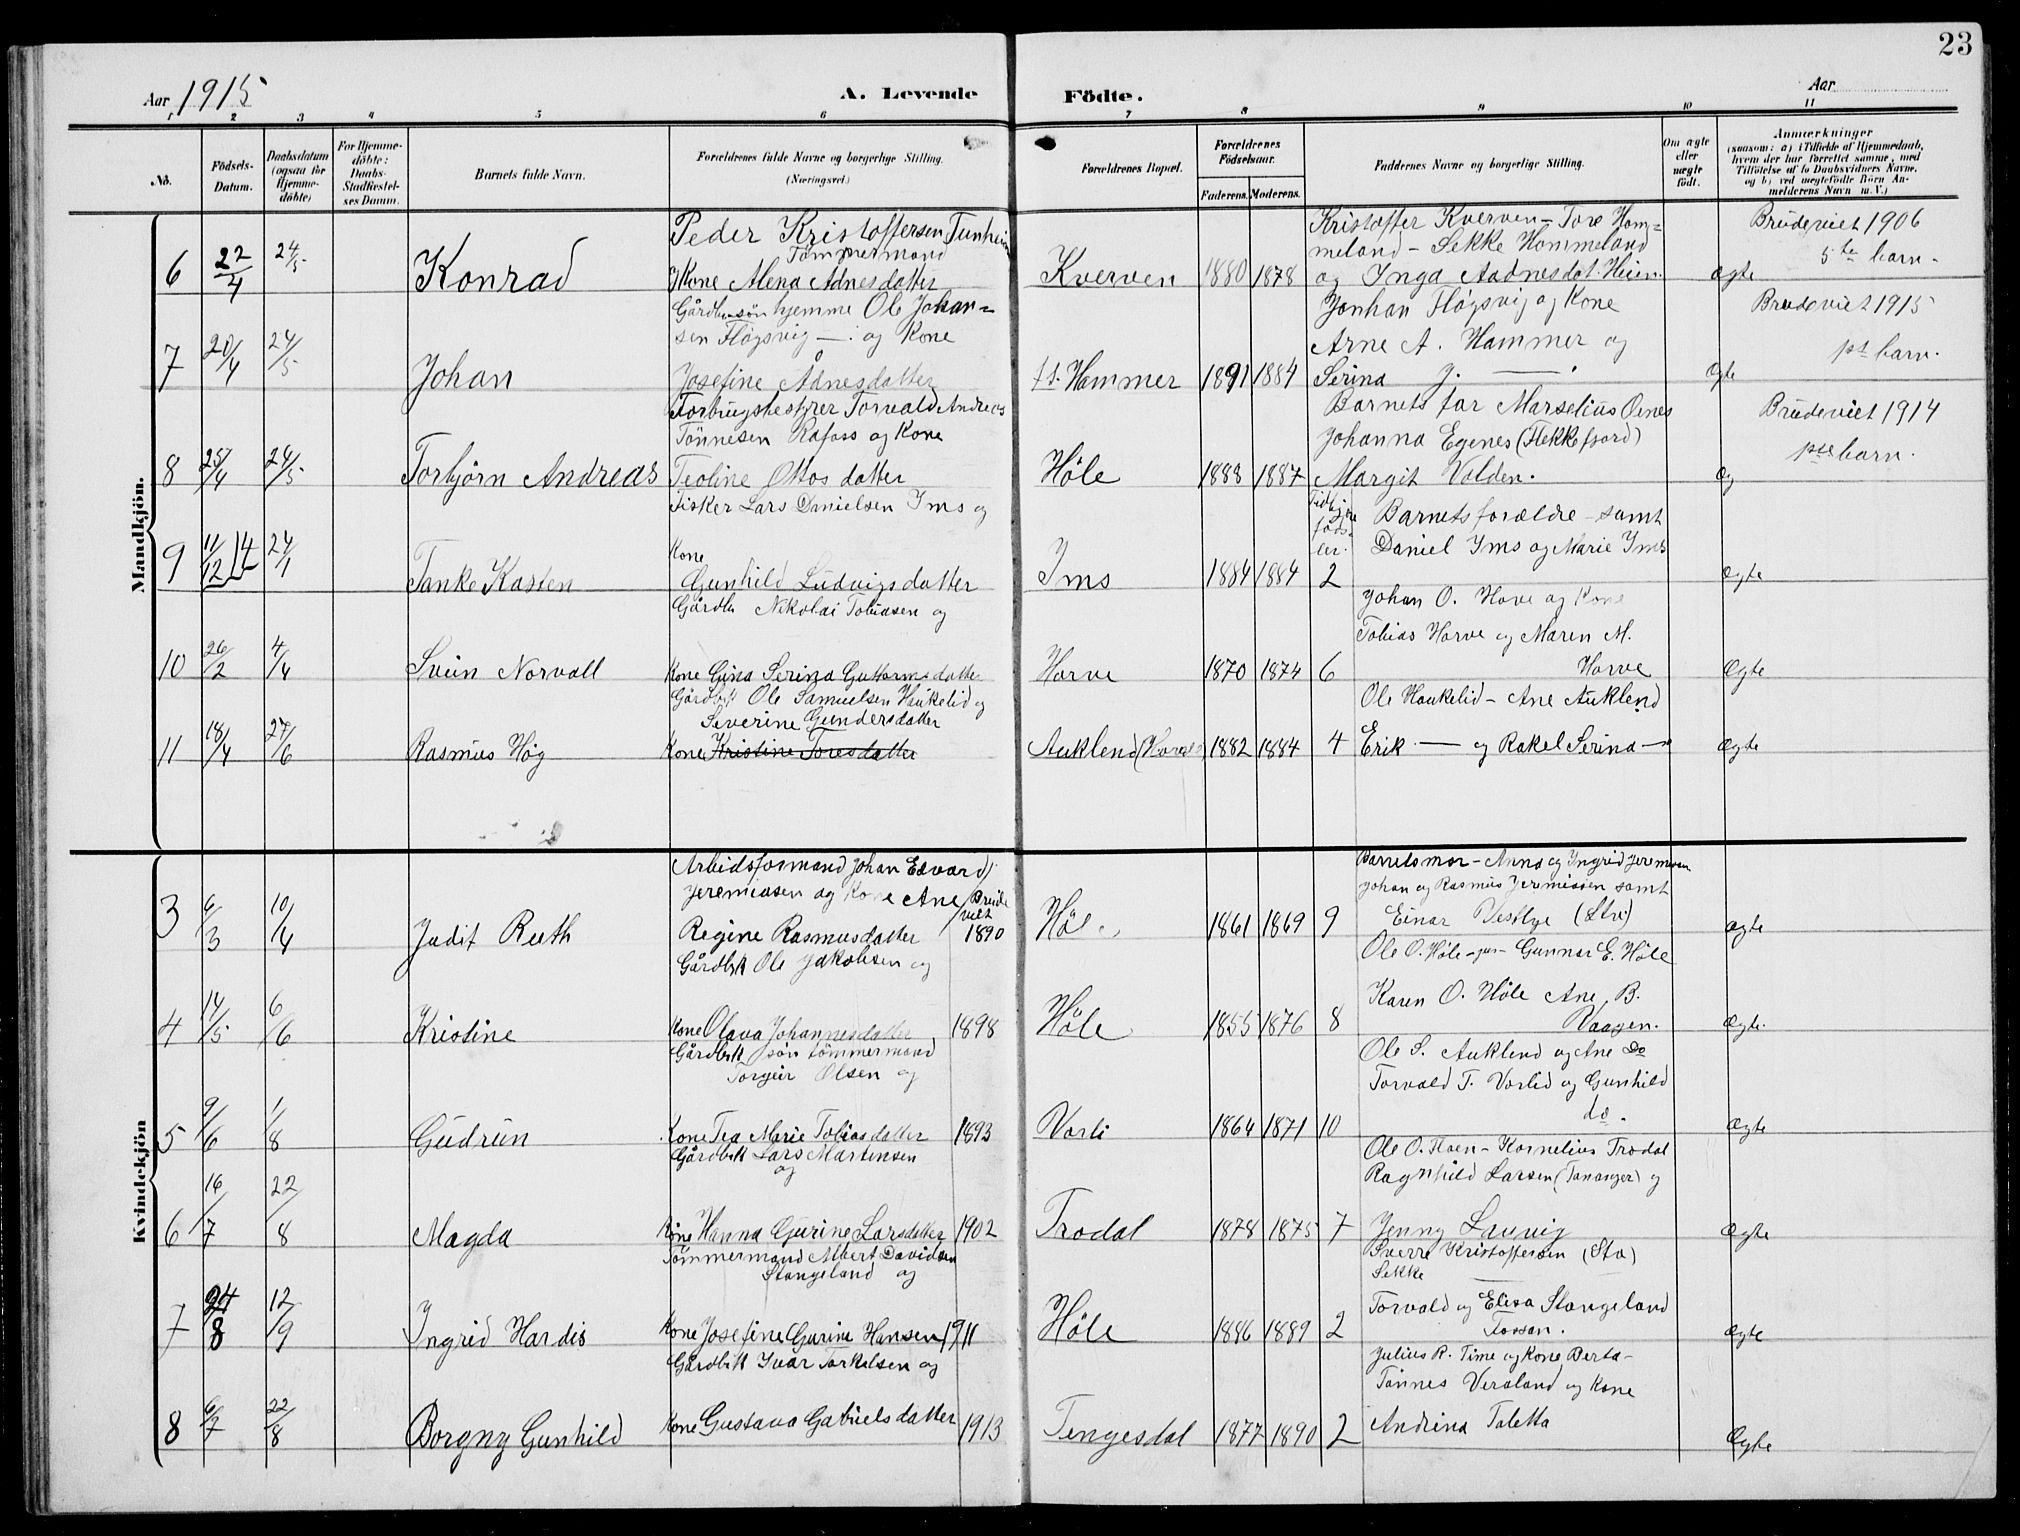 23
Aar 1915
A. Levende
Födte.
Aar
1 2 3 4 5 6 7 8 9 10 11
No.
Födsels-
Datum.
Daabsdatum
(ogsaa for
Hjemme-
döbte)
For Hjemme-
döbte:
Daabs-
Stadfæstel-
ses Datum.
Barnets fulde Navn.
Forældrenes fulde Navne og borgerlige Stilling.
(Næringsvei.)
Forældrenes Bopæl.
Forældrenes
Födselsaar.
Faderens. Moderens.
Faddernes Navne og borgerlige Stilling.
Om ægte
eller
uægte
födt.
Anmærkninger
(saasom: a) i Tilfælde af Hjemmedaab,
hvem der har forrettet samme, med
Tilföielse af to Daabsvidners Navne,
og b) ved uægtefödte Börn An-
melderens Navn m. V.)
Mandkjön.
Peder Kristoffersen Tunheim
Tømmermand
6 22/4 24/5 Konrad Kone Alena Adnesdatter
Kverven 1880 1878
Kristoffer Kverven – Tore Hom=
meland – Sekke Hommeland
og Inga Aadnesdat. Heim.
ægte
Brudeviet 1906
5te barn.
Gårdbr.søn hjemme Ole Johan=
sen Fløgsvig — . og Kone
7 20/4 24/5 Johan Josefine Ådnesdatter
Hammer 1891 1884
Jonhan Fløgsvig og Kone
Arne A. Hammer og
Serina J. — .
Ægte
Brudeviet 1915
barn.
Forbrugsbestyrer Torvald Andreas
Tönnesen Rafoss og Kone
8 25/4 24/5 Torbjørn Andreas Teoline Ottosdatter
Høle 1888 1887
Barnets far Marselius Oenes
Johanna Egenes (Flekkefjord)
Margit Volden.
Æg
Brudeviet 1914
barn.
Fisker Lars Danielsen Ims og
Kone
9 11/12 14 24/1 Tanke Kasten Gunhild Ludvigsdatter
Ims 1884 1884 2
Barnets forældre – samt
Daniel Ims og Marie Ims
Ægte
Gårdbr Nikolai Tobiasen og
10 26/2 4/4 Svein Norvall Kone Gina Serina Guttormsdatter
Horve 1870 1874 6
Johan O. Hove og Kone
Tobias Horve og Maren M.
Horve
Ægte
Gårdbrk Ole Samuelsen Haukelid og
Severine Gundersdatter
11 18/4 27/6 Rasmus Høg Kone Kristine Toresdatter
Auklend 1882 1884 4
Ole Haukelid – Ane Auklend
Erik — og Rakel Serina —
Ægte
Kvindekjön
Arbeidsformand Johan Edvard
Jeremiasen og Kone Ane Brude
viet
3 6/3 10/4 Judit Ruth Regine Rasmusdatter 1890
Høle 1861 1869 9
Barnets mor – Anna og Ingrid Jeremiasen
Johan og Rasmus Jeremiasen samt
Einar Vestlye (Stv)
ægte
Gårdbrk Ole Jakobsen og
4 14/5 6/6 Kristine Kone Olava Johannesdatter 1898
Høle 1855 1876 8
Ole O. Høle – jun – Gunnar E. Høle
Karen O. Høle Ane B.
Vaagen.
Ægte.
Gårdbrk søn tømmermand
Torgeir Olsen og
5 9/6 1/8 Gudrun Kone Tea Marie Tobiasdatter 1893
Vorli 1864 1871 10
Ole S. Auklend og Ane Do
Torvald T. Vorlid og Gunhild
do.
Ægte
Gårdbrk Lars Martensen
og
6 16/7 22/8 Magda Kone Hanna Gurine Larsdatter 1902
Trodal 1878 1875 7
Ole O. Haen – Kornelius Trodal
Ragnhild Larsen (Tananger) og
Jenny Lauvig
Ægte
Tømmermand Albert Davidsen
Stangeland og
7 24/8 12/9 Ingrid Hardis Kone Josefine Gurine Hansen 1911
Høle 1886 1889 2
Sverre Kristoffersen (Sta)
Sekke —
Torvald og Elisa Stangeland
Fossan.
Ægte
Gårdbrk Ivar Torkelsen og
8 6/7 22/8 Borgny Gunhild Kone Gustava Gabrielsdatter 1913
Tengesdal 1877 1890 2
Julius R. Time og Kone Berta –
Tönnes Veraland og Kone
Andrina Taletta
Ægte